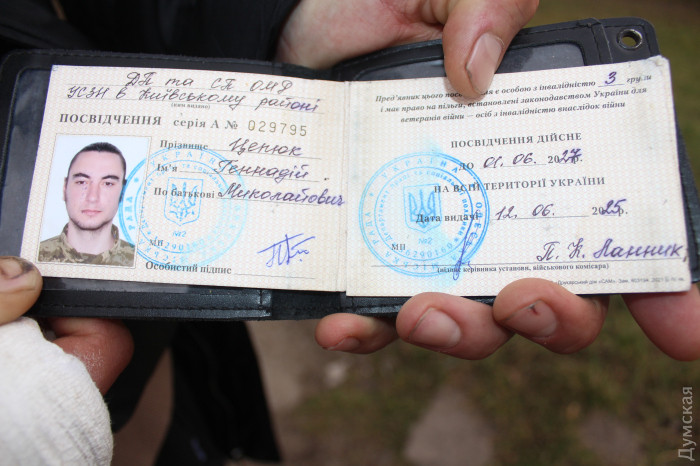 ДП та СП ОМР
УСЗН в Київському районі
(ким видано)
ПОСВІДЧЕННЯ серія А № 029795
Прізвище Ценюк
Ім'я Геннадій
По батькові Миколайович
МП
Особистий підпис
Пред'явник цього посвідчення є особою з інвалідністю 3 групи
і має право на пільги, встановлені законодавством України для
ветеранів війни – осіб з інвалідністю внаслідок війни
ПОСВІДЧЕННЯ ДІЙСНЕ
ДО 01.06. 2027.
НА ВСІЙ ТЕРИТОРІЇ УКРАЇНИ
Дата видачі 12. 06. 2025.
МП П. К. Ланник
(підпис керівника установи, військового комісара)
Думская